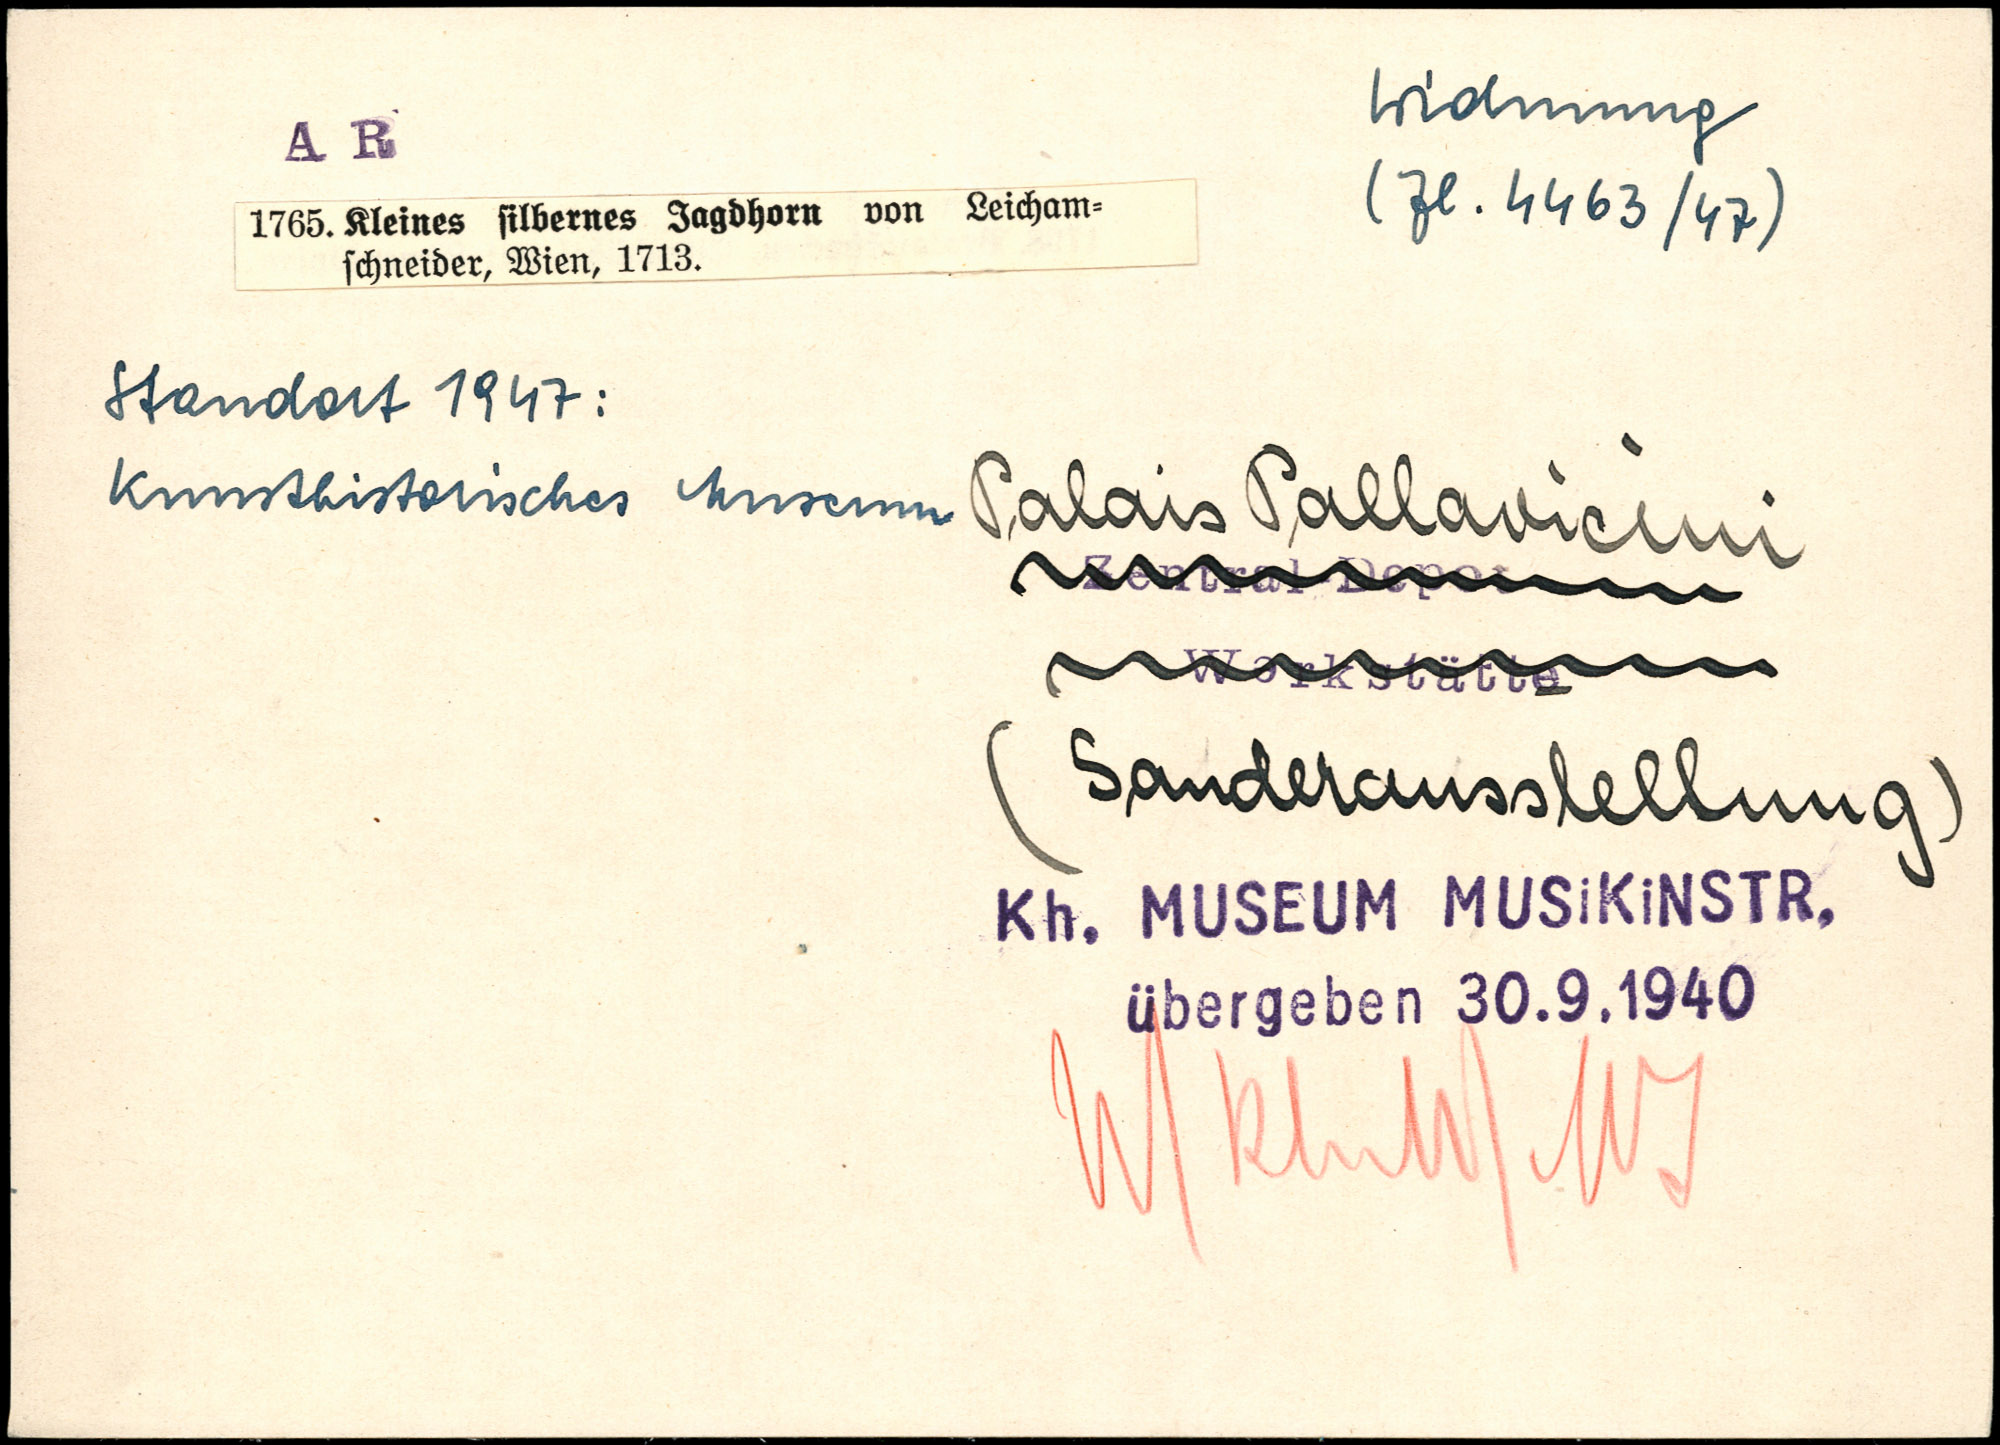 A R
Widmung
(Zl. 4463/47)
1765. Kleines silbernes Jagdhorn von Leicham-
schneider, Wien, 1713.
Standort 1947:
Kunsthistorisches Museum
Palais Pallavicini
Zentral-Depot
Werkstätte
(Sonderausstellung)
Kh. MUSEUM MUSiKiNSTR.
übergeben 30.9.1940